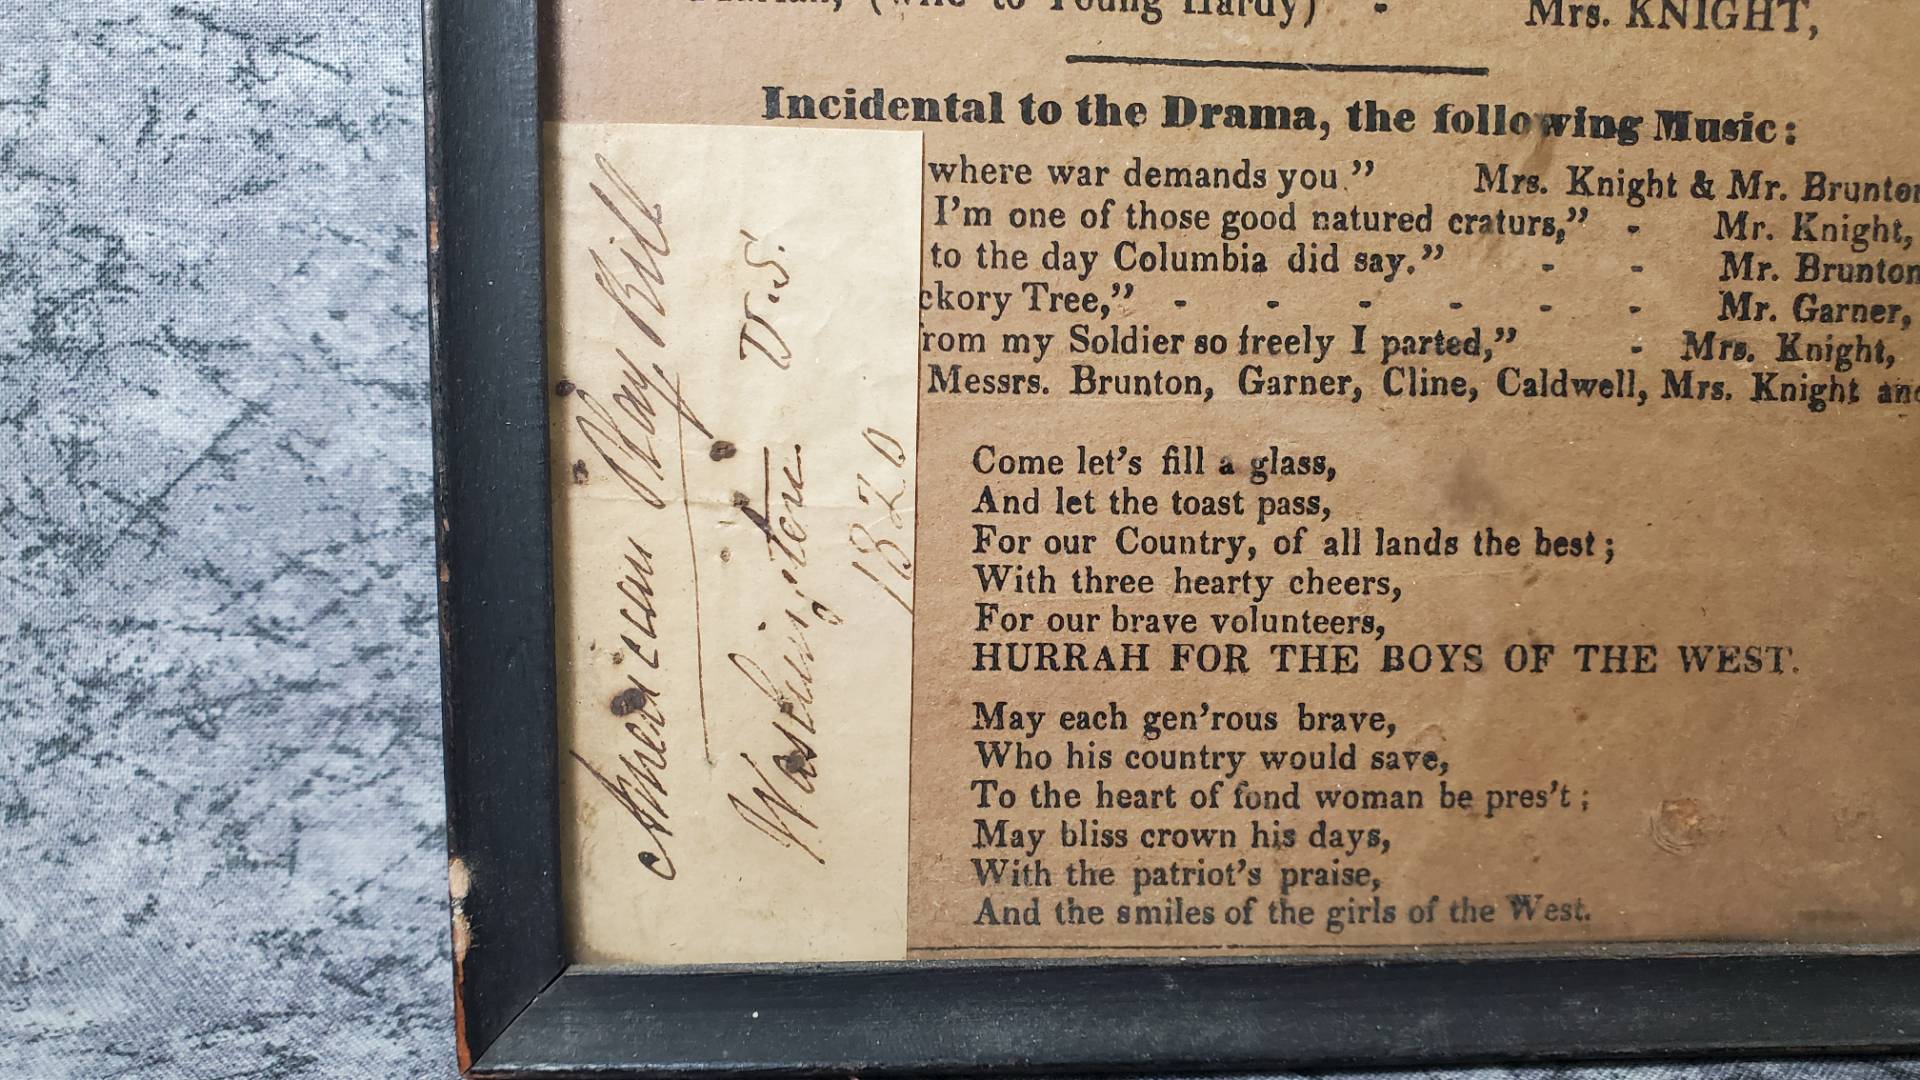 (wife to Young Hardy) - Mrs. KNIGHT,
Incidental to the Drama, the following Music:
where war demands you." Mrs. Knight & Mr. Brunton
I'm one of those good natured craturs," - Mr. Knight,
to the day Columbia did say." - - Mr. Brunton
ckory Tree," - - - - - - Mr. Garner,
rom my Soldier so freely I parted," - Mrs. Knight,
Messrs. Brunton, Garner, Cline, Caldwell, Mrs. Knight and
Come let's fill a glass,
And let the toast pass,
For our Country, of all lands the best;
With three hearty cheers,
For our brave volunteers,
HURRAH FOR THE BOYS OF THE WEST.
May each gen'rous brave,
Who his country would save,
To the heart of fond woman be pres't;
May bliss crown his days,
With the patriot's praise,
And the smiles of the girls of the West.
American Play Bill
Washington U.S.
1820